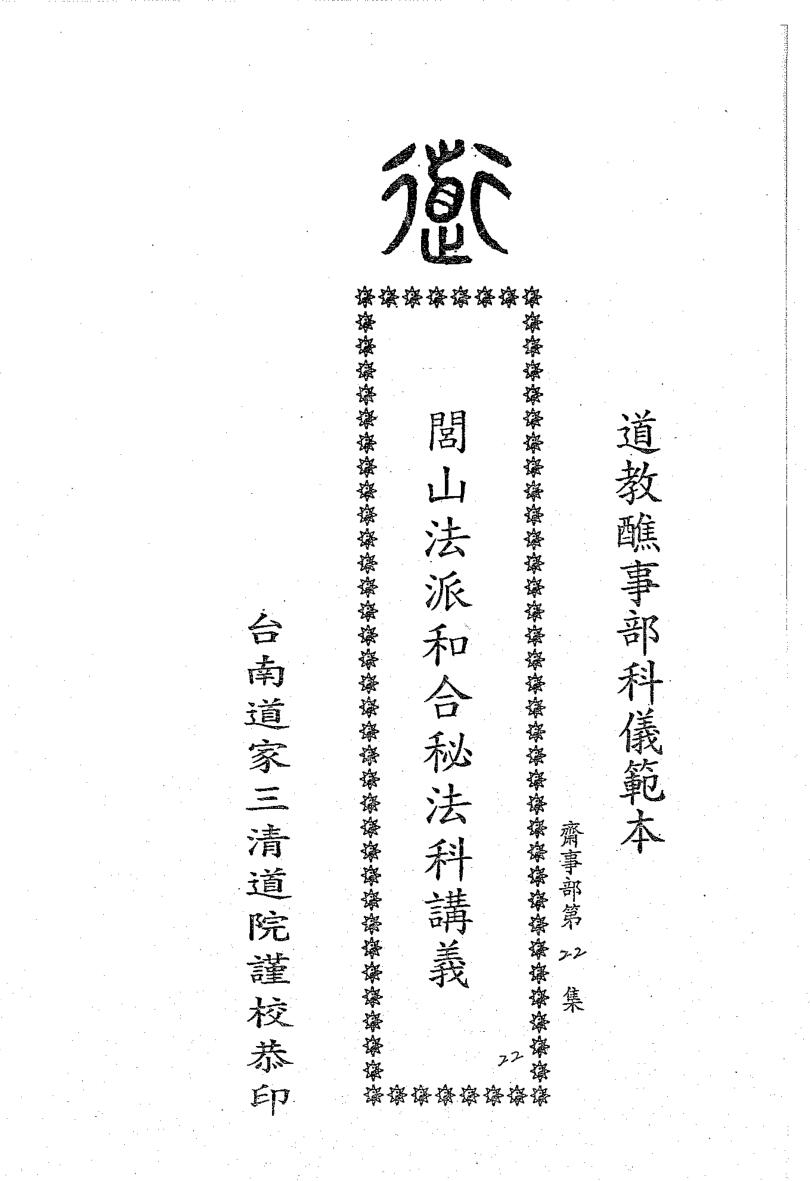 衟
道教醮事部科儀範本
齋事部第22集
閭山法派和合秘法科講義
22
台南道家三清道院謹校恭印